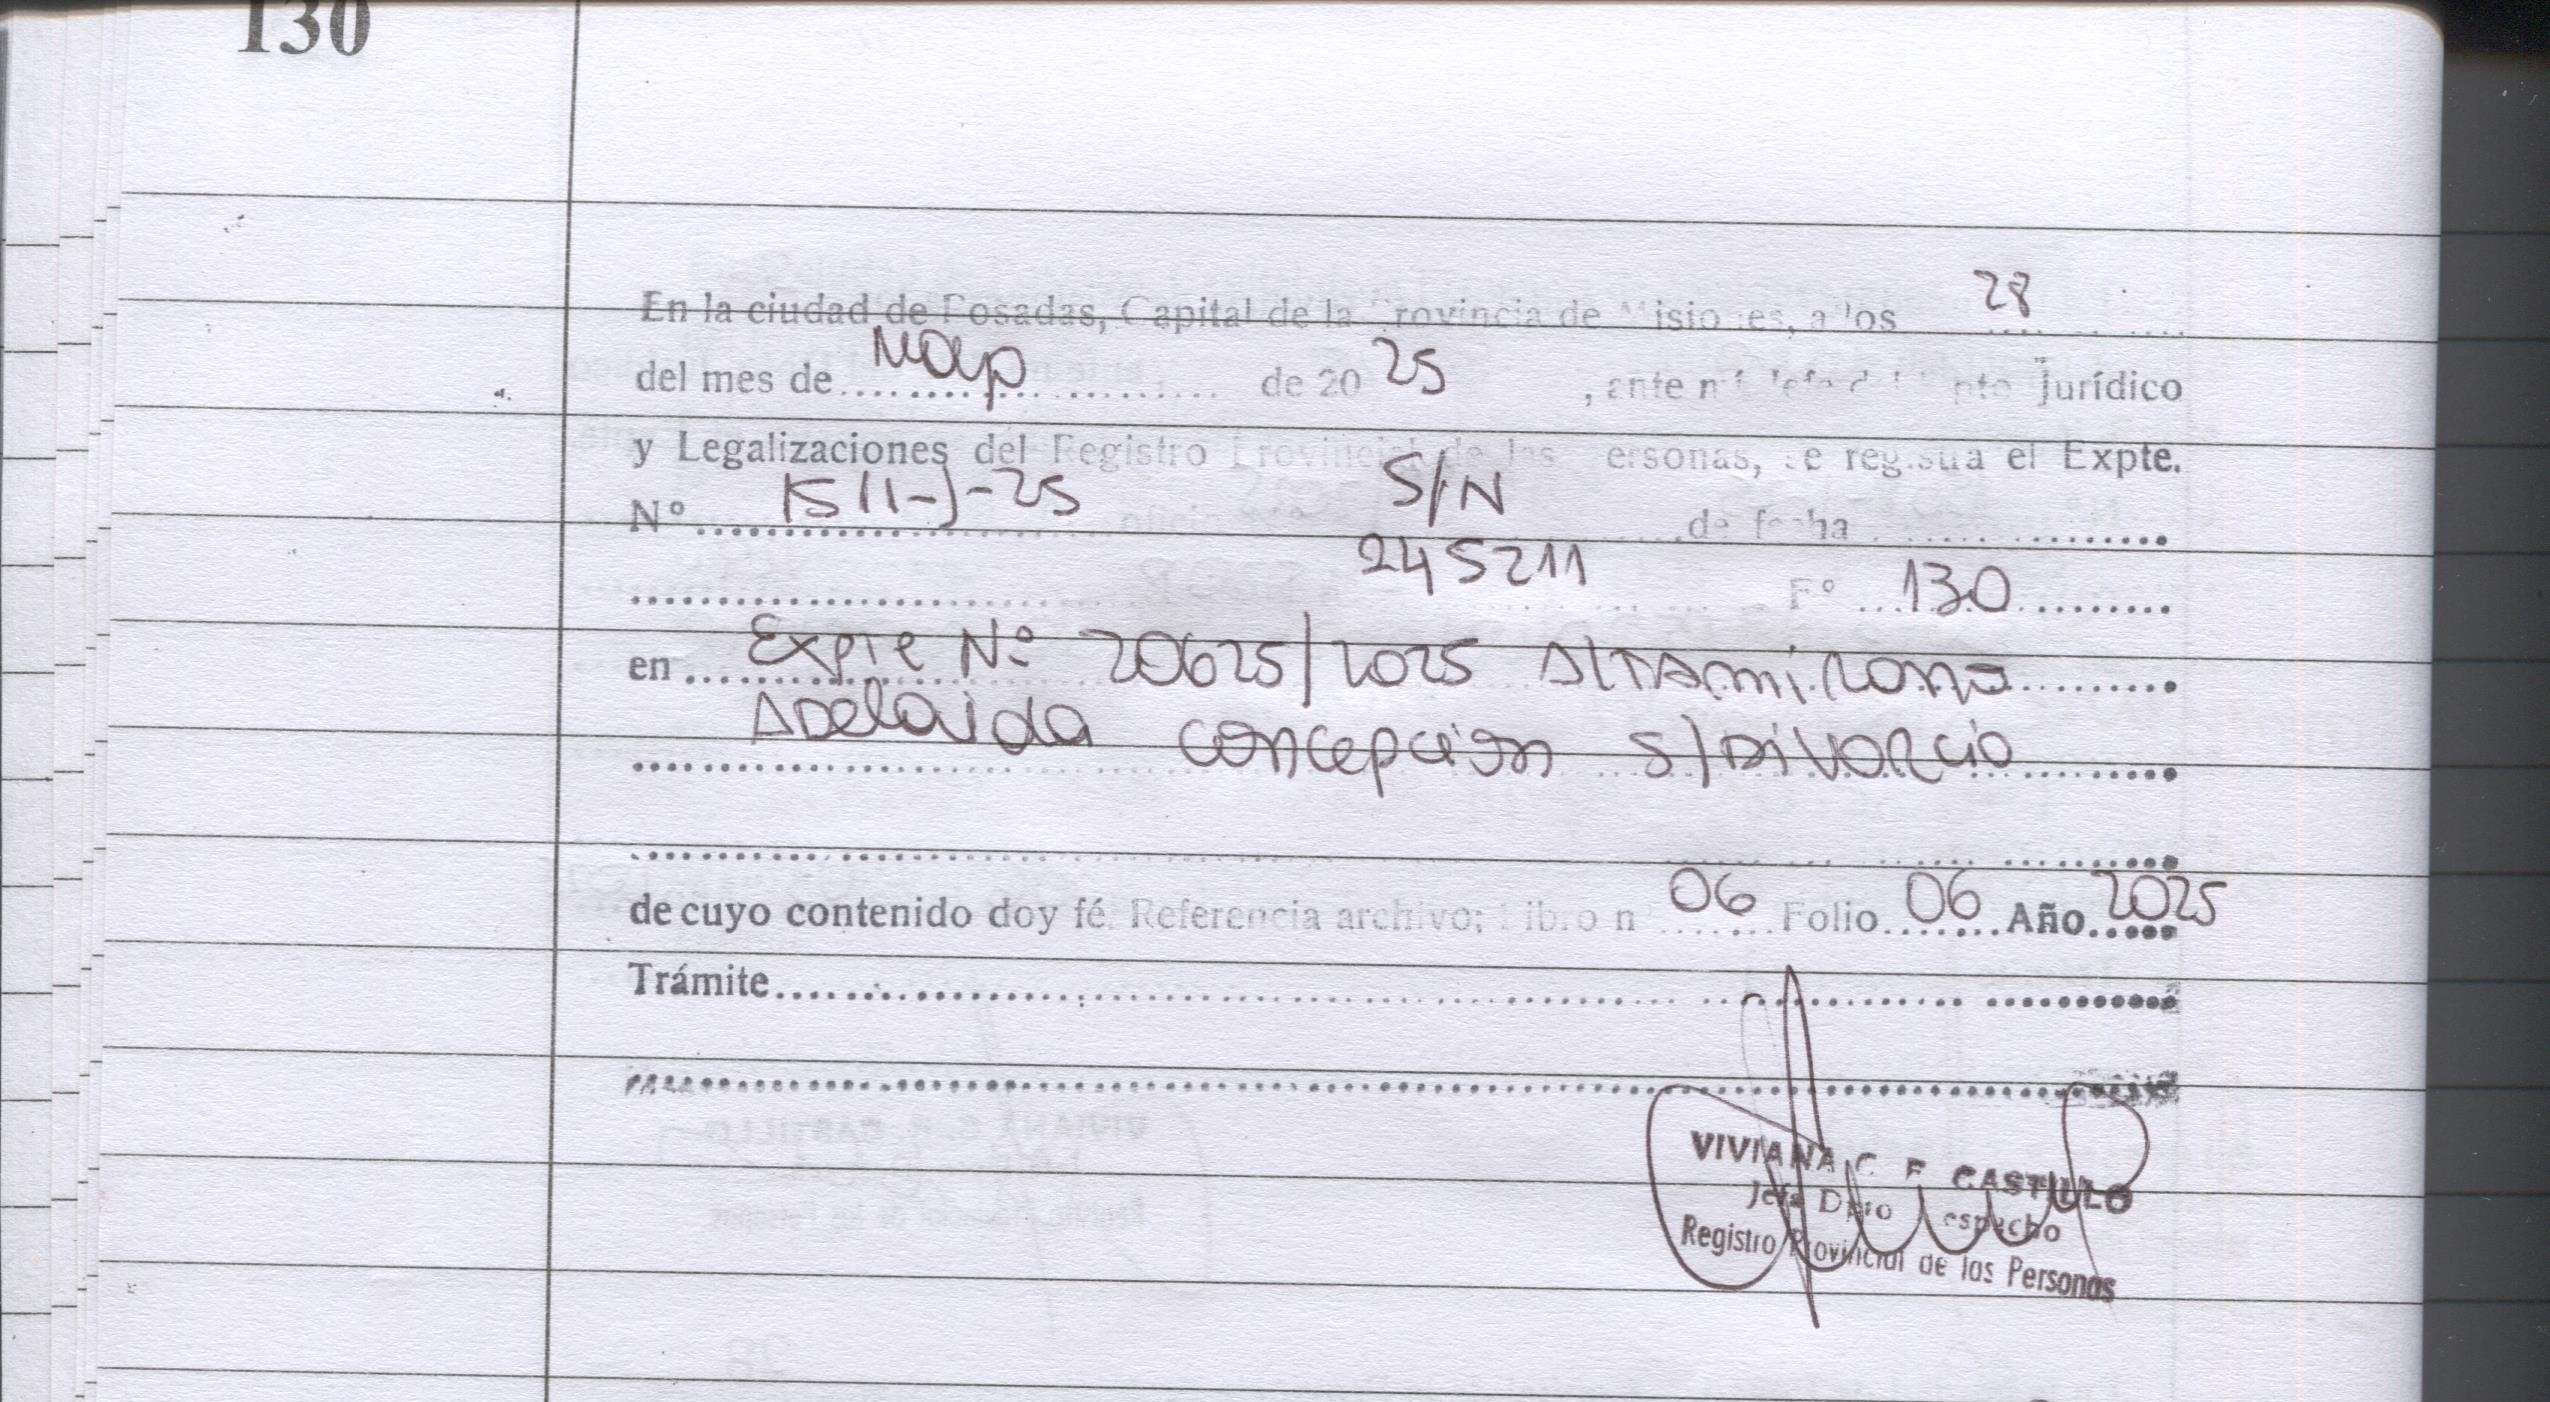 130
En la ciudad de Posadas, Capital de la Provincia de Misiones, a los 28
del mes de Mayo de 2025, ante mí Jefe del Dpto Jurídico
y Legalizaciones del Registro Provincial de las Personas, se registra el Expte.
Nº 1511-J-25 oficio S/N de fecha
245211 Fº 130
en Expte Nº 20625/2025 Altamirano
Adelaida Concepcion s/Divorcio
de cuyo contenido doy fé. Referencia archivo; Libro nº 06 Folio 06 Año 2025
Trámite
VIVIANA C. CASTILLO
Jefa Dpto Despacho
Registro Provincial de las Personas